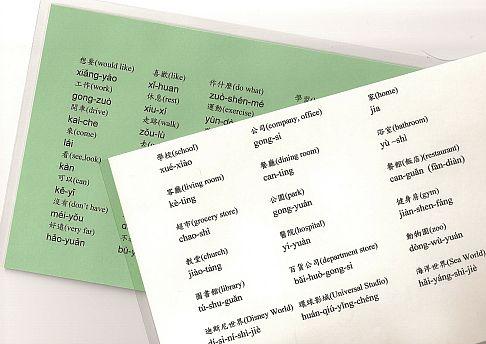 想要(would like)
xiǎng-yào
工作(work)
gong-zuò
開車(drive)
kai-che
來(come)
lái
看(see,look)
kàn
可以(can)
kě-yǐ
沒有(don't have)
méi-yǒu
好遠(very far)
hǎo-yuǎn
喜歡(like)
xǐ-huan
休息(rest)
xiu-xí
走路(walk)
zǒu-lù
作什麼(do what)
zuò-shén-mé
運動(exercise)
學校(school)
xué-xiào
客廳(living room)
kè-ting
超市(grocery store)
chao-shì
教堂(church)
jiào-táng
圖書館(library)
tú-shu-guǎn
迪斯尼世界(Disney World)
dí-si-ní-shì-jiè
公司(company, office)
gong-si
餐廳(dining room)
can-ting
公園(park)
gong-yuán
醫院(hospital)
yi-yuàn
百貨公司(department store)
bǎi-huò-gong-si
環球影城(Universal Studio)
huán-qiú-yǐng-chéng
家(home)
jia
浴室(bathroom)
yù –shì
餐館(飯店)(restaurant)
can-guǎn (fàn-diàn)
健身房(gym)
jiàn-shen-fáng
動物園(zoo)
dòng-wù-yuán
海洋世界(Sea World)
hǎi-yáng-shì-jiè